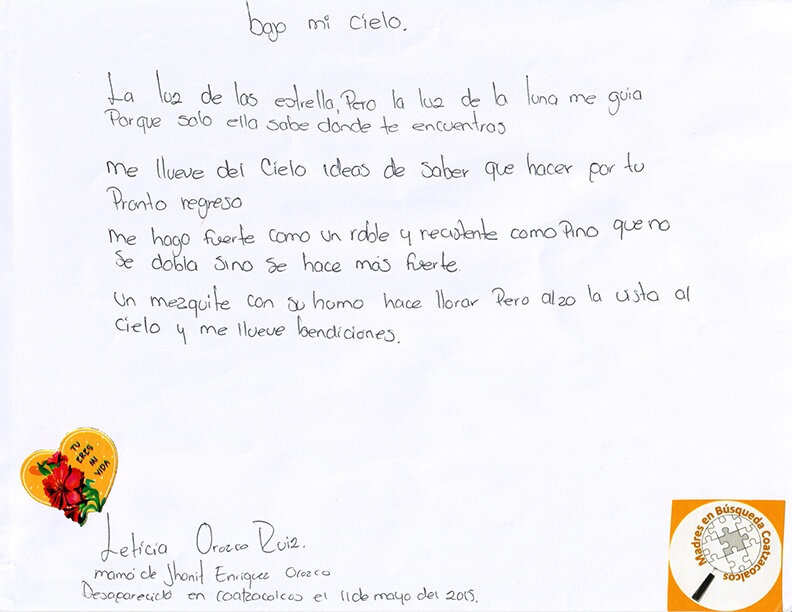 bajo mi cielo.
La luz de las estrella, Pero la luz de la luna me guia
Porque solo ella sabe donde te encuentras
me llueve del Cielo ideas de saber que hacer por tu
Pronto regreso
me hago fuerte como un roble y recistente como Pino que no
se dobla sino se hace más fuerte.
un mezquite con su humo hace llorar Pero alzo la vista al
cielo y me llueve bendiciones.
TU
ERES
MI
VIDA
Leticia Orozco Ruiz.
mamá de Jhonit Enriquez Orozco
Desaparecido en coatzacolcos el 11 de mayo del 2015.
Madres en Búsqueda Coatzacoalcos